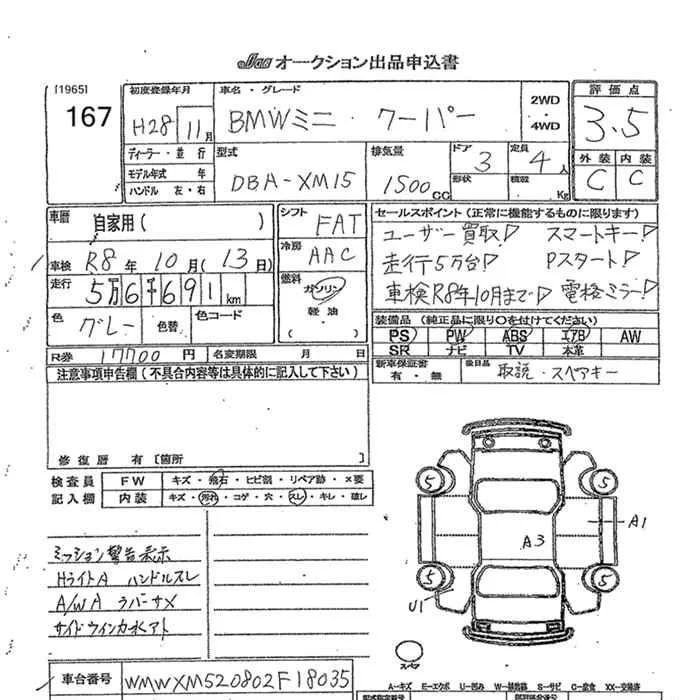 Jaa オークション出品申込書
[1965]
167
初度登録年月
H28 11月
車名・グレード
BMWミニ・クーパー
2WD
・
4WD
評価点
3.5
ディーラー・並行
モデル年式 年
ハンドル 左・右
型式
DBA-XM15
排気量
1500cc
ドア
3
形状
定員
4人
積載
Kg
外装 内装
C C
車歴
自家用( )
シフト
FAT
セールスポイント(正常に機能するものに限ります)
ユーザー買取! スマートキー!
走行5万台! Pスタート!
車検R8年10月まで! 電格ミラー!
車検 R8年10月(13日)
冷房
AAC
走行
5万6千691km
燃料
ガソリン
・
軽油
色
グレー
色替
色コード
装備品(純正品に限り○を付けてください)
PS PW ABS エアB AW
SR ナビ TV 本革
R券 17700円 名変期限 月 日
新車保証書
有・無
後日品
取説・スペアキー
注意事項申告欄(不具合内容等は具体的に記入して下さい)
修復歴 有[箇所
検査員
記入欄
FW キズ・飛石・ヒビ割・リペア跡・×要
内装 キズ・汚れ・コゲ・穴・スレ・キレ・破レ
ミッション警告表示
HライトA ハンドルスレ
A/W A ラバーサメ
サイドウィンカ水アト
5 5
A1
A3
5 5
U1
スペア
車台番号 WMWXM520802F18035
A−キズ E−エクボ U−凹み W−補修跡 S−サビ C−腐食 XX−交換済